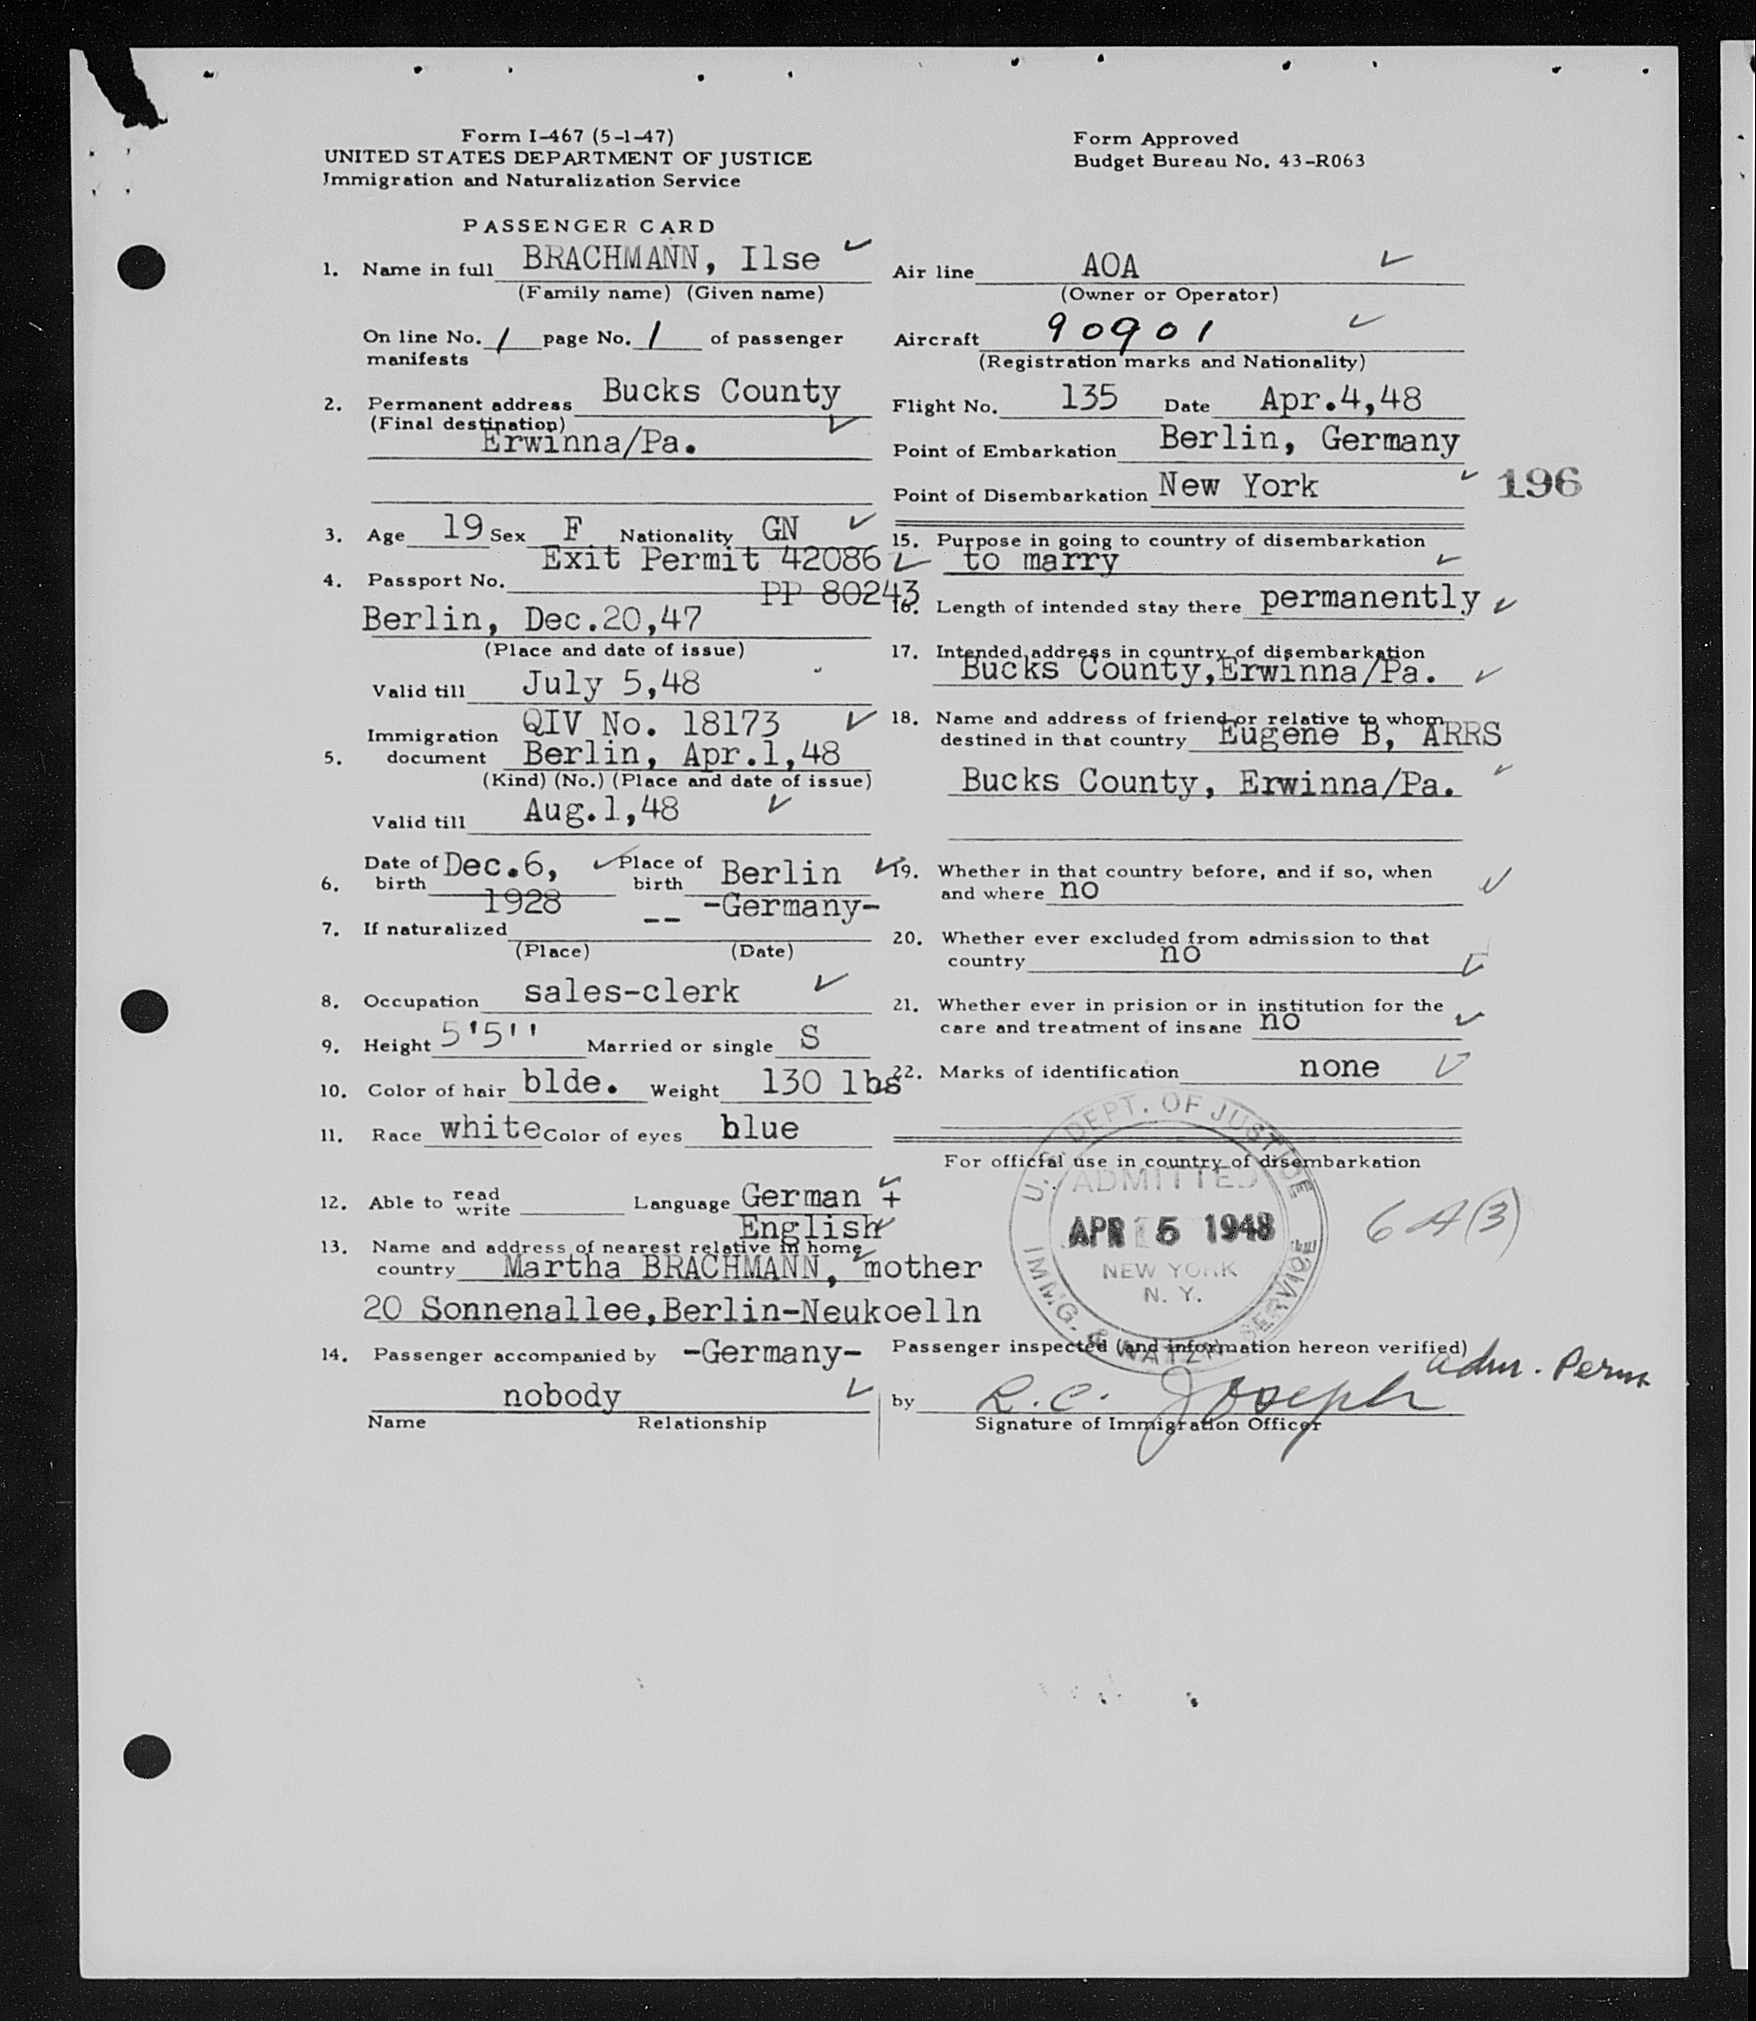 Form I-467 (5-1-47)
UNITED STATES DEPARTMENT OF JUSTICE
Immigration and Naturalization Service
Form Approved
Budget Bureau No. 43-R063
PASSENGER CARD
1. Name in full BRACHMANN, Ilse
(Family name) (Given name)
On line No. 1 page No. 1 of passenger
manifests
2. Permanent address Bucks County
(Final destination)
Erwinna/Pa.
3. Age 19 Sex F Nationality GN
Exit Permit 42086
4. Passport No. PP 80243
Berlin, Dec.20,47
(Place and date of issue)
Valid till July 5,48
Immigration QIV No. 18173
5. document Berlin, Apr.1,48
(Kind) (No.) (Place and date of issue)
Valid till Aug.1,48
6. Date of birth Dec.6, 1928 Place of birth Berlin
-Germany-
7. If naturalized --
(Place) (Date)
8. Occupation sales-clerk
9. Height 5'5'' Married or single S
10. Color of hair blde. Weight 130 lbs
11. Race white Color of eyes blue
12. Able to read write Language German +
English
13. Name and address of nearest relative in home
country Martha BRACHMANN, mother
20 Sonnenallee,Berlin-Neukoelln
14. Passenger accompanied by -Germany-
nobody
Name Relationship
Air line AOA
(Owner or Operator)
Aircraft 90901
(Registration marks and Nationality)
Flight No. 135 Date Apr.4,48
Point of Embarkation Berlin, Germany
Point of Disembarkation New York
196
15. Purpose in going to country of disembarkation
to marry
16. Length of intended stay there permanently
17. Intended address in country of disembarkation
Bucks County,Erwinna/Pa.
18. Name and address of friend or relative to whom
destined in that country Eugene B, ARRS
Bucks County, Erwinna/Pa.
19. Whether in that country before, and if so, when
and where no
20. Whether ever excluded from admission to that
country no
21. Whether ever in prision or in institution for the
care and treatment of insane no
22. Marks of identification none
For official use in country of disembarkation
U.S. DEPT. OF JUSTICE
ADMITTED
APR 5 1948
NEW YORK
N. Y.
IMMG. & NATZN SERVICE
Passenger inspected (and information hereon verified)
adm. Perm
by R.C. Joseph
Signature of Immigration Officer